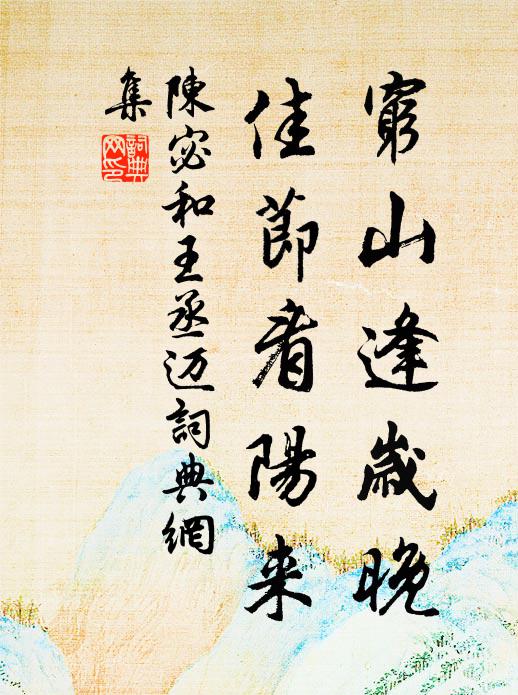 窮山逢歲晚
佳節看陽来
陳宓和王丞迈詞典網
集
詞典網印